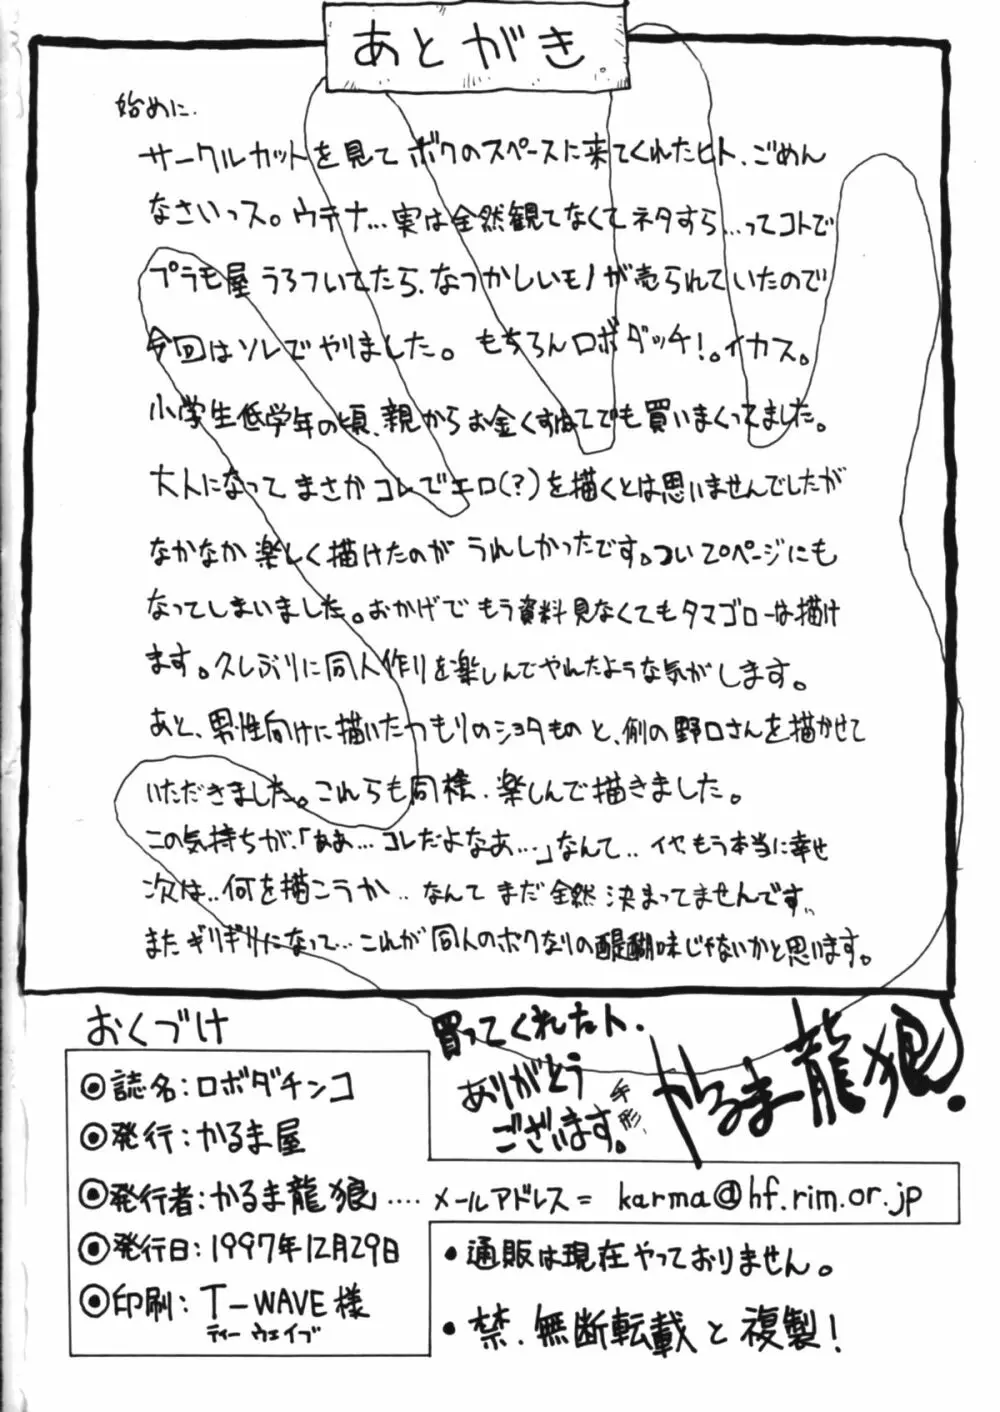 あとがき
始めに.
サークルカットを見てボクのスペースに来てくれたヒト、ごめん
なさいっス。ウテナ…実は全然観てなくてネタすら…ってコトで
プラモ屋うろついてたら、なつかしいモノが売られていたので
今回はソレでやりました。もちろんロボダッチ!。イカス。
小学生低学年の頃、親からお金くすねてでも買いまくってました。
大人になってまさかコレでエロ(?)を描くとは思いませんでしたが
なかなか楽しく描けたのがうれしかったです。ついて20ページにも
なってしまいました。おかげでもう資料見なくてもタマゴローは描け
ます。久しぶりに同人作りを楽しんでやれたような気がします。
あと、男性向けに描いたつもりのショタものと、例の野口さんを描かせて
いただきました。これらも同様、楽しんで描きました。
この気持ちが、「ああ…コレだよなあ…」なんて‥イヤもう本当に幸せ
次は‥何を描こうか‥なんてまだ全然決まってませんです‥
またギリギリになって…これが同人のボクなりの醍醐味じゃないかと思います。
おくづけ
◎誌名:ロボダチンコ
◎発行:かるま屋
◎発行者:かるま龍狼……メールアドレス= karma@hf.rim.or.jp
◎発行日:1997年12月29日
◎印刷:T-WAVE様
ティーウェイブ
買ってくれたヒト、
ありがとう
ございます。
手形、
かるま龍狼!
・通販は現在やっておりません。
・禁、無断転載と複製!